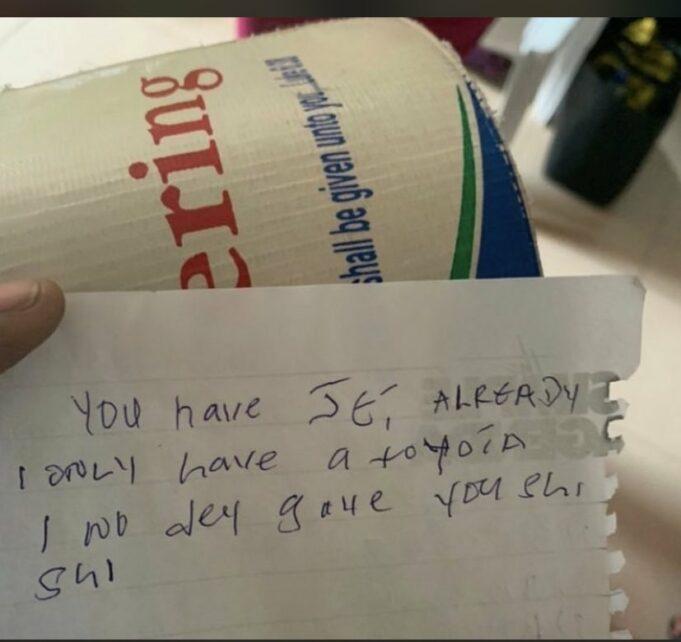 ering
shall be given unto you...
YOU have JET, ALREADY
I ONLY have a toyoTA
I NO dey gave you shi
shi